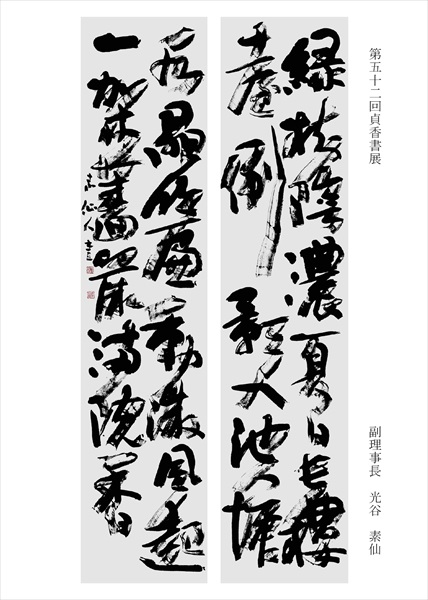 第五十二回貞香書展
副理事長 光谷 素仙
緑樹陰濃夏日長樓
臺倒影入池塘
水晶簾動微風起
一架薔薇満院香